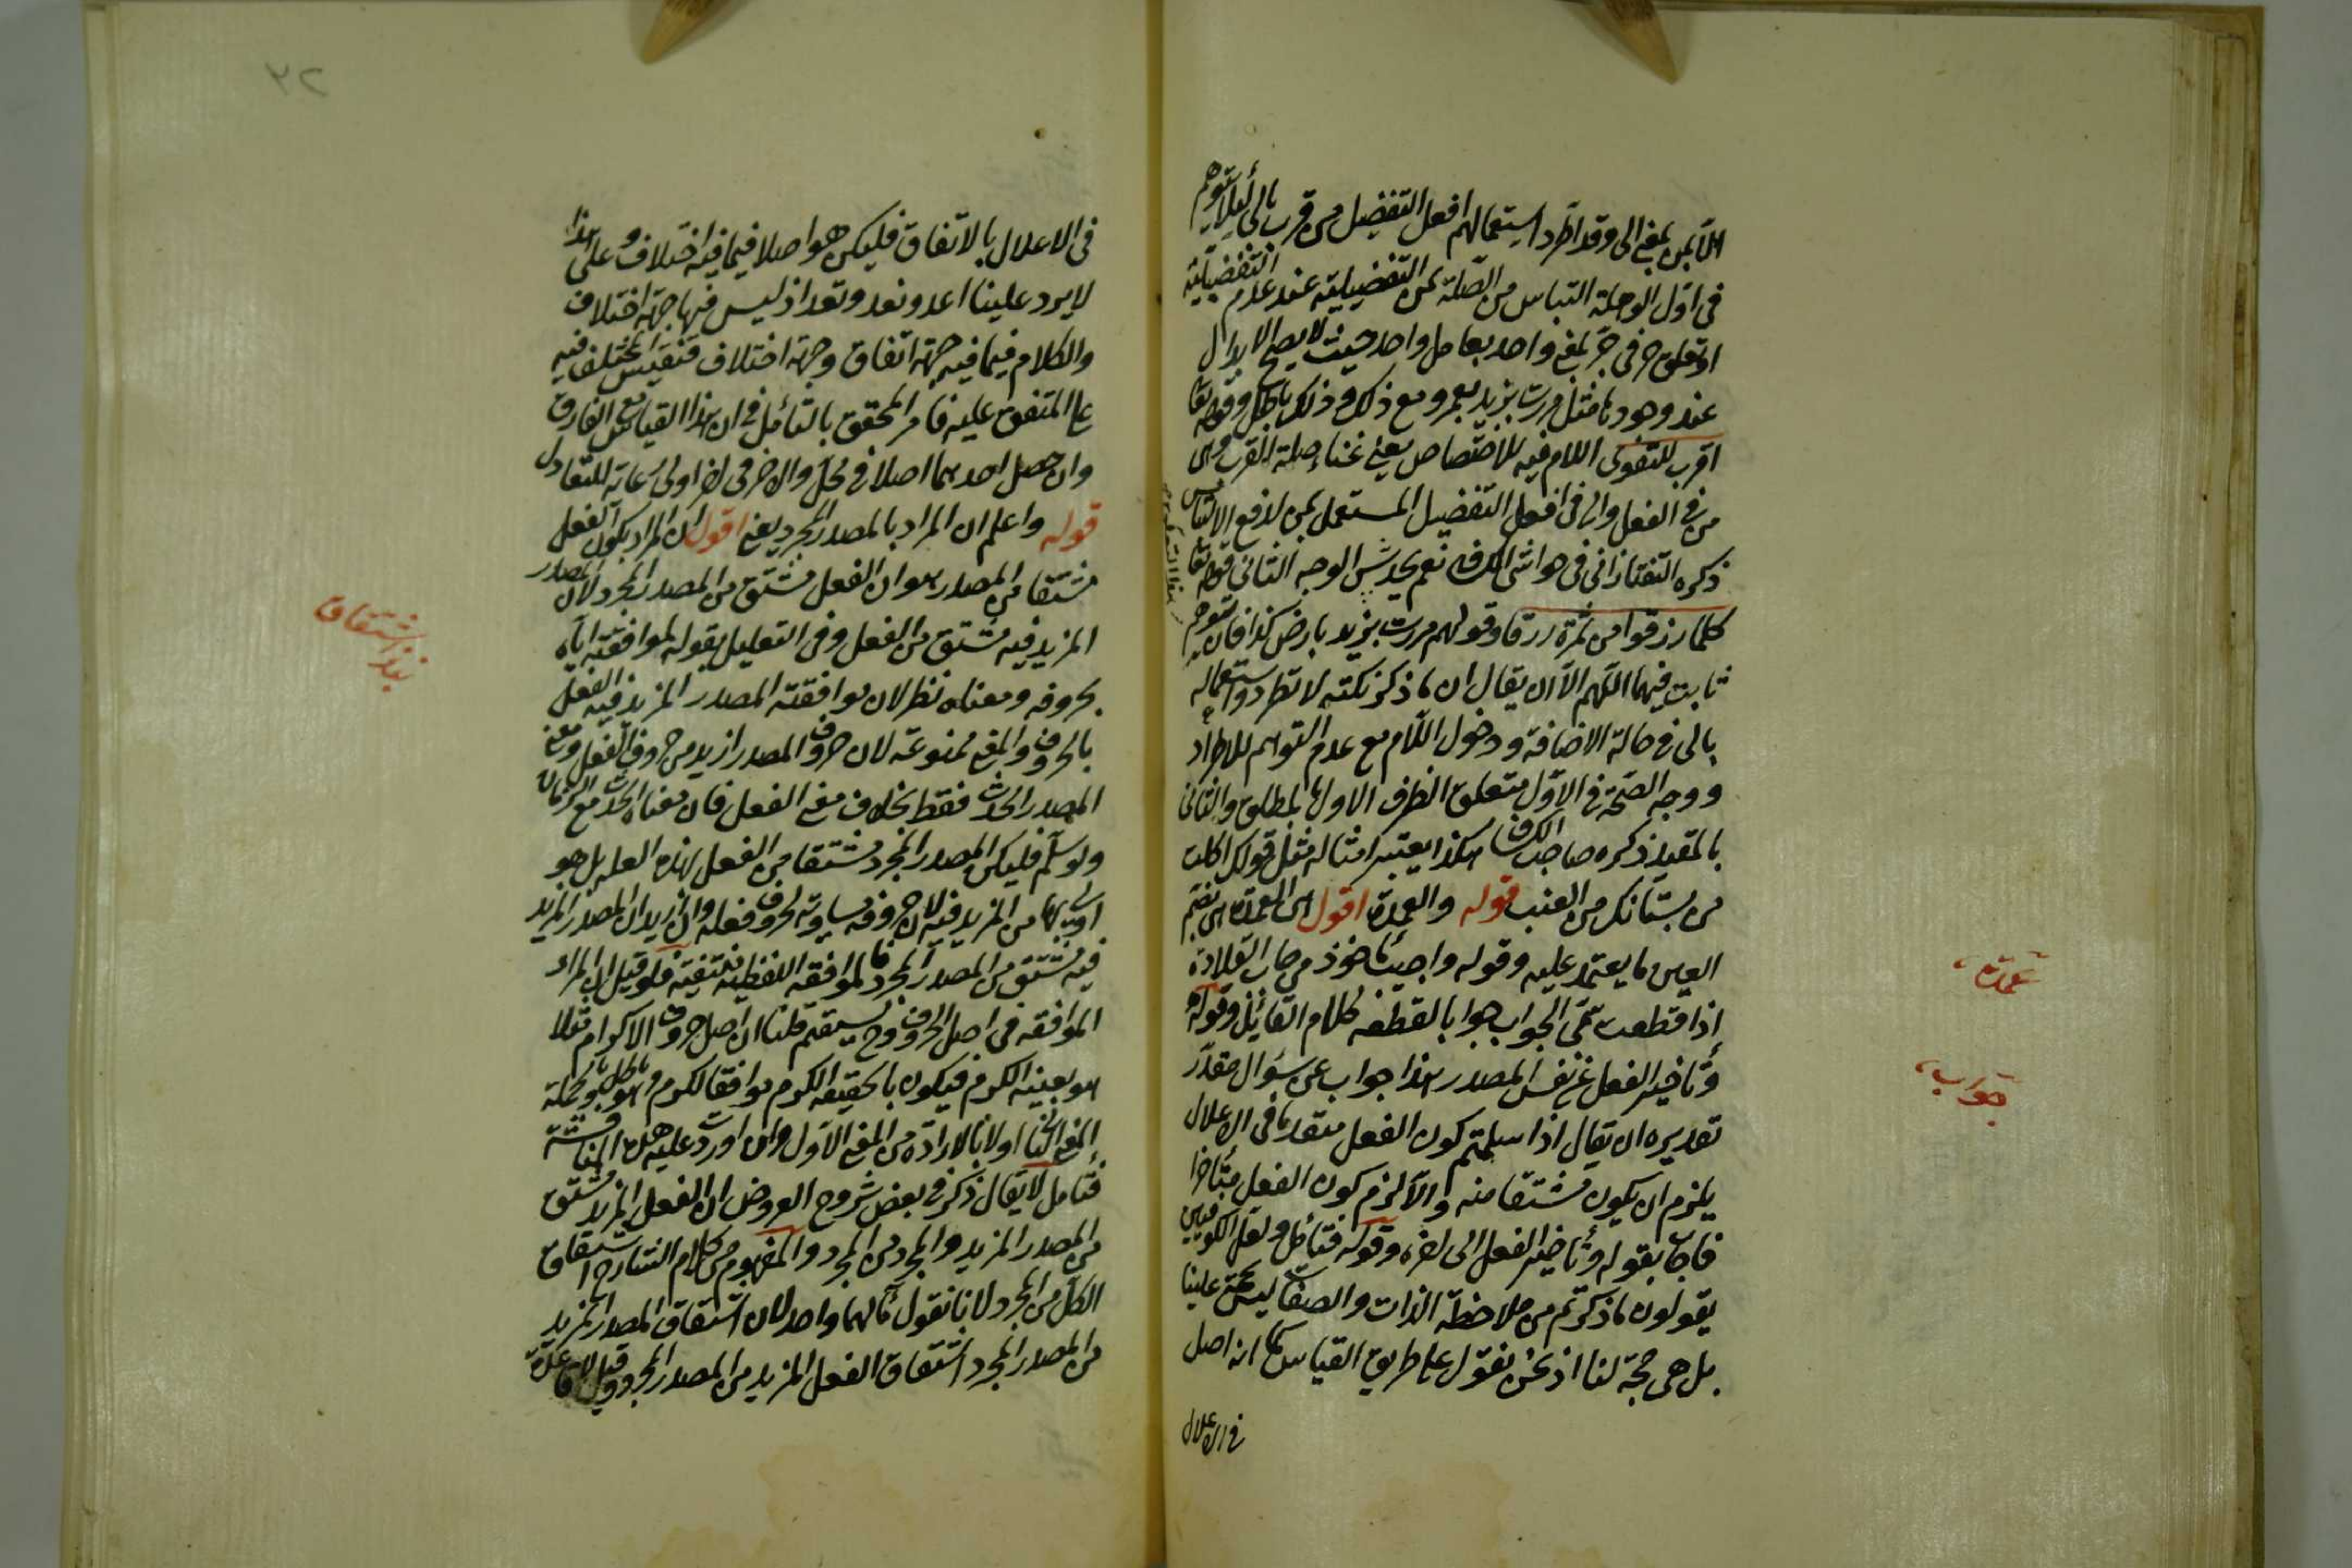 الا بمن بمعنى الى وقد اطرد استعمالهم افعل التفضيل من قرب بالى لئلا يتوهم
فى اول الوهلة التباس من الصلة بمن التفضيلية عند عدم التفضيلية
او تعلق حرفى جر بمعنى واحد بعامل واحد حيث لا يصح الابدال
عند وجودها مثل مررت بزيد بعمرو مع ذلك وذلك باطل وقوله تعا
اقرب للتقوى اللام فيه للاختصاص يعنى غناء صلة القرب هى
من فى الفعل والى فى افعل التفضيل المستعمل بمن لدفع الالتباس
ذكره التفتازانى فى حواشى الكشاف نعم يخدش الوجه الثانى قوله تعا
كلما رزقوا من ثمرة رزقا وقولهم مررت بزيد بارض كذا فان توهم
ثابت فيهما اللهم الا ان يقال ان ما ذكر نكتة لا تطرد واستعماله
بالى فى حالة الاضافة ودخول اللام مع عدم التوهم للاطراد
ووجه الصحة فى الاول متعلق الظرف الاول بالمطلق والثانى
بالمقيد ذكره صاحب الكشاف هكذا يعتبر امثاله مثل قولك اكلت
من بستانك من العنب قوله والعمدة اقول اى العمدة اى بضم
العين ما يعتمد عليه وقوله واجيب ماخوذ من جاب القلادة
اذا قطعت سمى الجواب جوابا لقطعه كلام القائل وقوله
وتاخير الفعل عن نفس المصدر هذا جواب عن سؤال مقدر
تقديره ان يقال اذا سلمتم كون الفعل متقدما فى الاعلال
يلزم ان يكون مشتقا منه والا لزم كون الفعل متأخرا
فاجاب بقوله وتأخير الفعل الى اخره وقوله فتأمل ولعل الكوفيين
يقولون ما ذكرتم من ملاحظة الذات والصفات ليس بحجة علينا
بل هى حجة لنا اذ نحن نقول على طريق القياس كما انه اصل
فى الاعلال
عمدة
جواب
٢٢
فى الاعلال بالاتفاق فليكن هو اصلا فيما فيه اختلاف وعلى هذا
لا يرد علينا اعد ونعد وتعد اذ ليس فيها جهة اختلاف
والكلام فيما فيه جهة اتفاق وجهة اختلاف فنقيس المختلف فيه
على المتفق عليه فامر المحقق بالتأمل فى ان هذا القياس مع الفارق
وان جعل احدهما اصلا فى محل والاخر فى اخر اولى رعاية للتعادل
قوله واعلم ان المراد بالمصدر المجرد يعنى اقول ان المراد بكون الفعل
مشتقا من المصدر هو ان الفعل مشتق من المصدر المجرد لان المصدر
المزيد فيه مشتق من الفعل وفى التعليل بقوله لموافقته اياه
بحروفه ومعناه نظر لان موافقة المصدر المزيد فيه الفعل
بالحروف والمعنى ممنوعة لان حروف المصدر ازيد من حروف الفعل ومعنى
المصدر الحدث فقط بخلاف معنى الفعل فان معناه الحدث مع الزمان
ولو سلم فليكن المصدر المجرد مشتقا من الفعل بهذه العلة بل هو
اولى بها من المزيد فيه لان حروفه مساوية لحروف فعله وان اريد ان المصدر المزيد
فيه مشتق من المصدر المجرد فالموافقة اللفظية منتفية فلو قيل ان المراد
الموافقة فى اصل الحروف وح يستقيم قلنا ان اصل حروف الاكرام مثلا
هو بعينه الكرم فيكون بالحقيقة الكرم موافقا لكرم وهو باطل
المعنى اولا بالارادة من المعنى الاول وان اوردت عليه هل المناقشة
فتأمل لا يقال ذكر فى بعض شروح العروض ان الفعل المزيد مشتق
من المصدر المزيد والمجرد من المجرد والمفهوم من كلام الشارح اشتقاق
الكل من المجرد لانا نقول مآلهما واحد لان اشتقاق المصدر المزيد
من المصدر المجرد اشتقاق الفعل المزيد من المصدر المجرد وقيل
اشتقاق